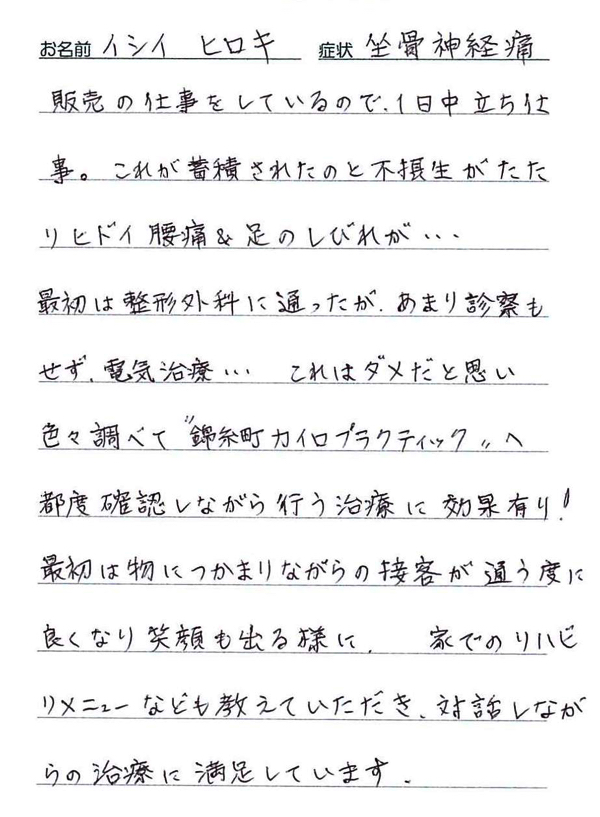 お名前 イシイ ヒロキ 症状 坐骨神経痛
販売の仕事をしているので、1日中立ち仕
事。これが蓄積されたのと不摂生がたた
りヒドイ腰痛&足のしびれが・・・
最初は整形外科に通ったが、あまり診察も
せず、電気治療・・・ これはダメだと思い
色々調べて〝錦糸町カイロプラクティック〟へ
都度確認しながら行う治療に効果有り!
最初は物につかまりながらの接客が通う度に
良くなり笑顔も出る様に、 家でのリハビ
リメニューなども教えていただき、対話しなが
らの治療に満足しています。